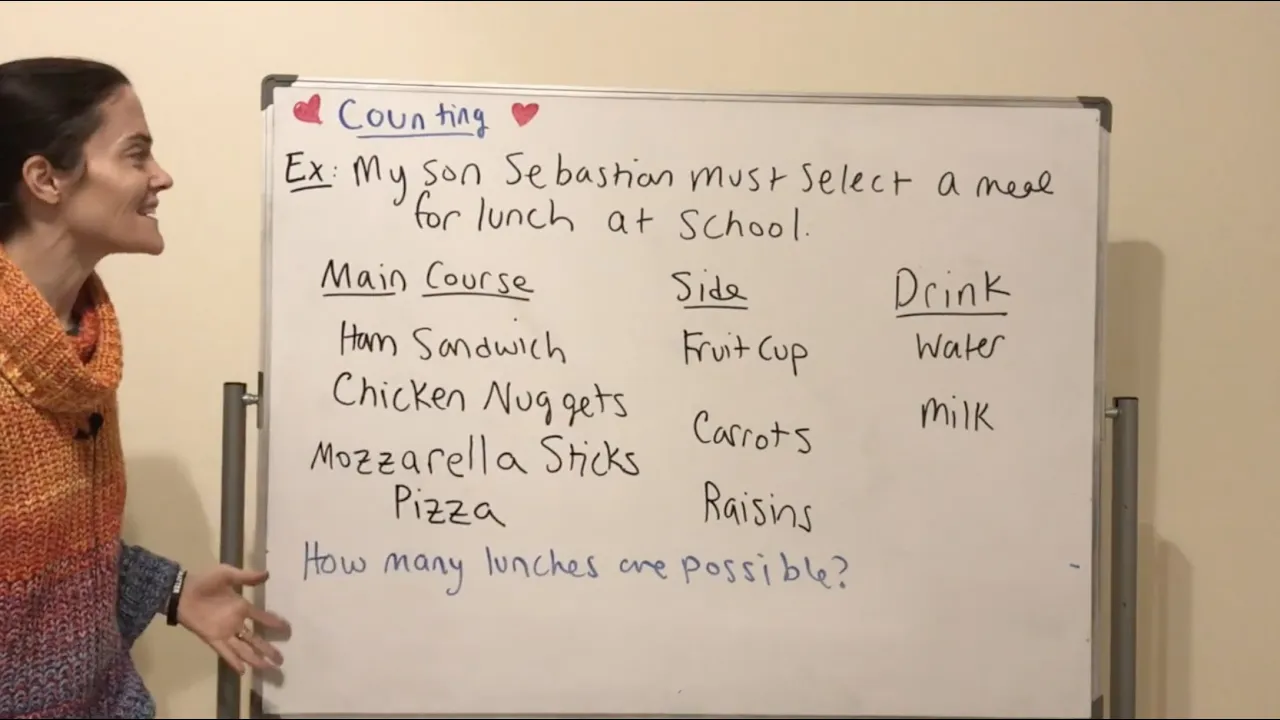 Counting
Ex: My son Sebastian must select a meal
for lunch at school.
Main Course Side Drink
Ham Sandwich Fruit Cup Water
Chicken Nuggets Carrots Milk
Mozzarella Sticks Raisins
Pizza
How many lunches are possible?